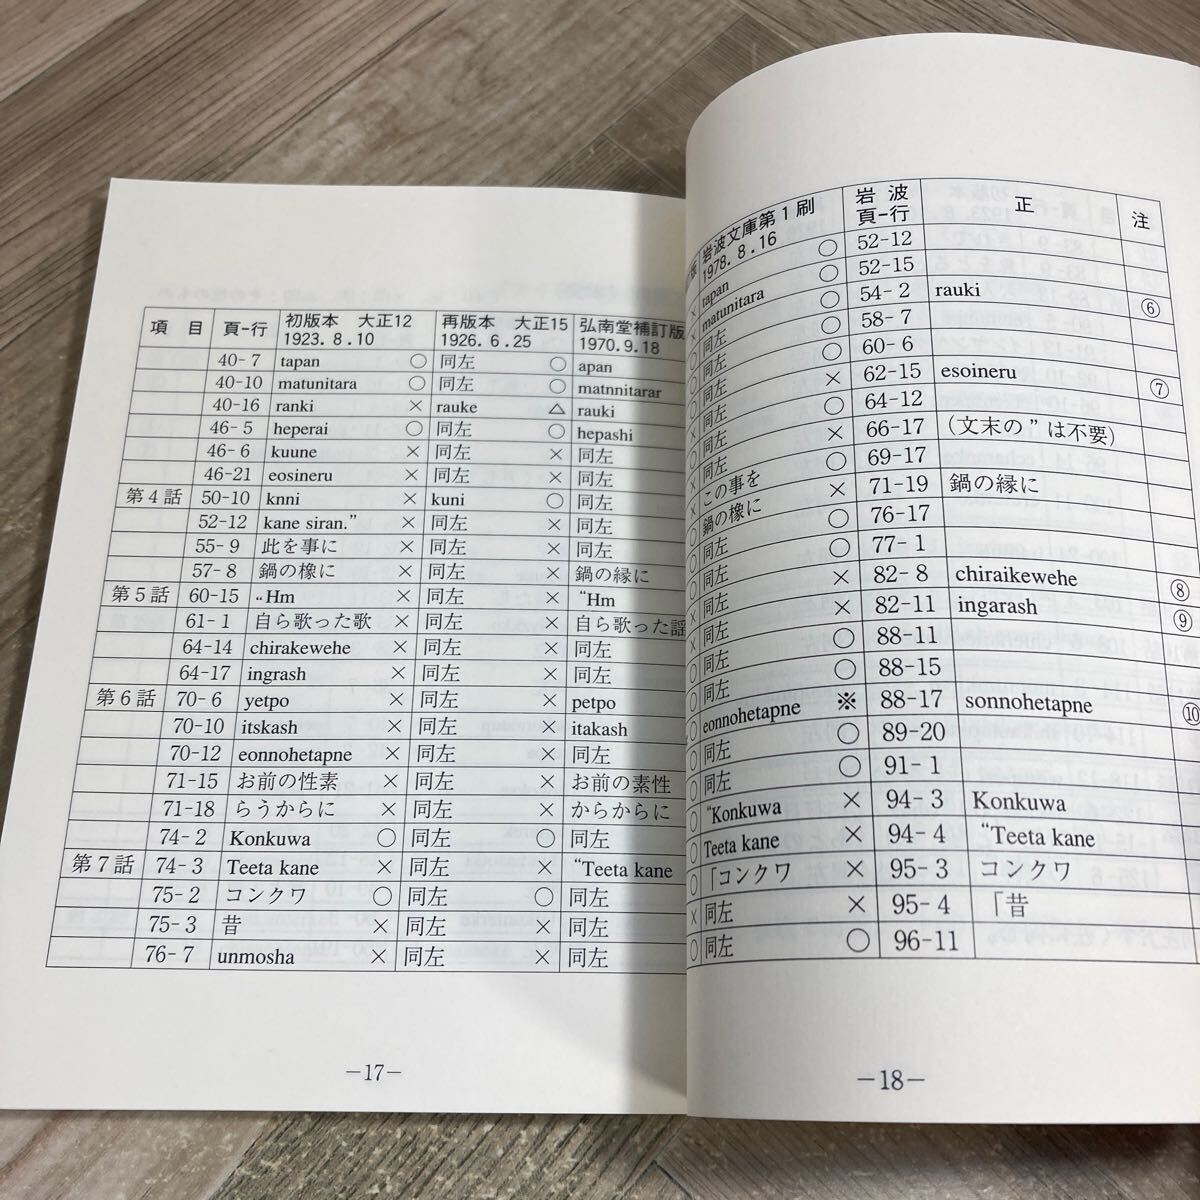 項 目 頁-行 初版本 大正12 1923. 8. 10 再版本 大正15 1926. 6. 25 弘南堂補訂版 1970.9.18
40-7 tapan ○ 同左 ○ apan
40-10 matunitara ○ 同左 ○ matnnitarar
40-16 ranki × rauke △ rauki
46-5 heperai ○ 同左 ○ hepashi
46-6 kuune × 同左 × 同左
46-21 eosineru × 同左 × 同左
第4話 50-10 knni × kuni ○ 同左
52-12 kane siran.” × 同左 × 同左
55-9 此を事に × 同左 × 同左
57-8 鍋の橡に × 同左 × 鍋の縁に
第5話 60-15 “Hm × 同左 × “Hm
61-1 自ら歌った歌 × 同左 × 自ら歌った謡
64-14 chirakewehe × 同左 × 同左
64-17 ingrash × 同左 × 同左
第6話 70-6 yetpo × 同左 × petpo
70-10 itskash × 同左 × itakash
70-12 eonnohetapne × 同左 × 同左
71-15 お前の性素 × 同左 × お前の素性
71-18 らうからに × 同左 × からからに
74-2 Konkuwa ○ 同左 ○ 同左
第7話 74-3 Teeta kane × 同左 × “Teeta kane
75-2 コンクワ ○ 同左 ○ 同左
75-3 昔 × 同左 × 同左
76-7 unmosha × 同左 × 同左
-17-
岩波文庫第1刷 1978. 8. 16 岩 波 頁-行 正 注
× tapan ○ 52-12
× matunitara ○ 52-15
同左 ○ 54-2 rauki ⑥
同左 ○ 58-7
同左 ○ 60-6
同左 × 62-15 esoineru ⑦
同左 ○ 64-12
同左 × 66-17 (文末の”は不要)
同左 ○ 69-17
この事を × 71-19 鍋の縁に
鍋の橡に ○ 76-17
同左 ○ 77-1
同左 × 82-8 chiraikewehe ⑧
同左 × 82-11 ingarash ⑨
同左 ○ 88-11
同左 ○ 88-15
eonnohetapne ※ 88-17 sonnohetapne ⑩
同左 ○ 89-20
同左 ○ 91-1
“Konkuwa × 94-3 Konkuwa
Teeta kane × 94-4 “Teeta kane
「コンクワ × 95-3 コンクワ
同左 × 95-4 「昔
同左 ○ 96-11
-18-